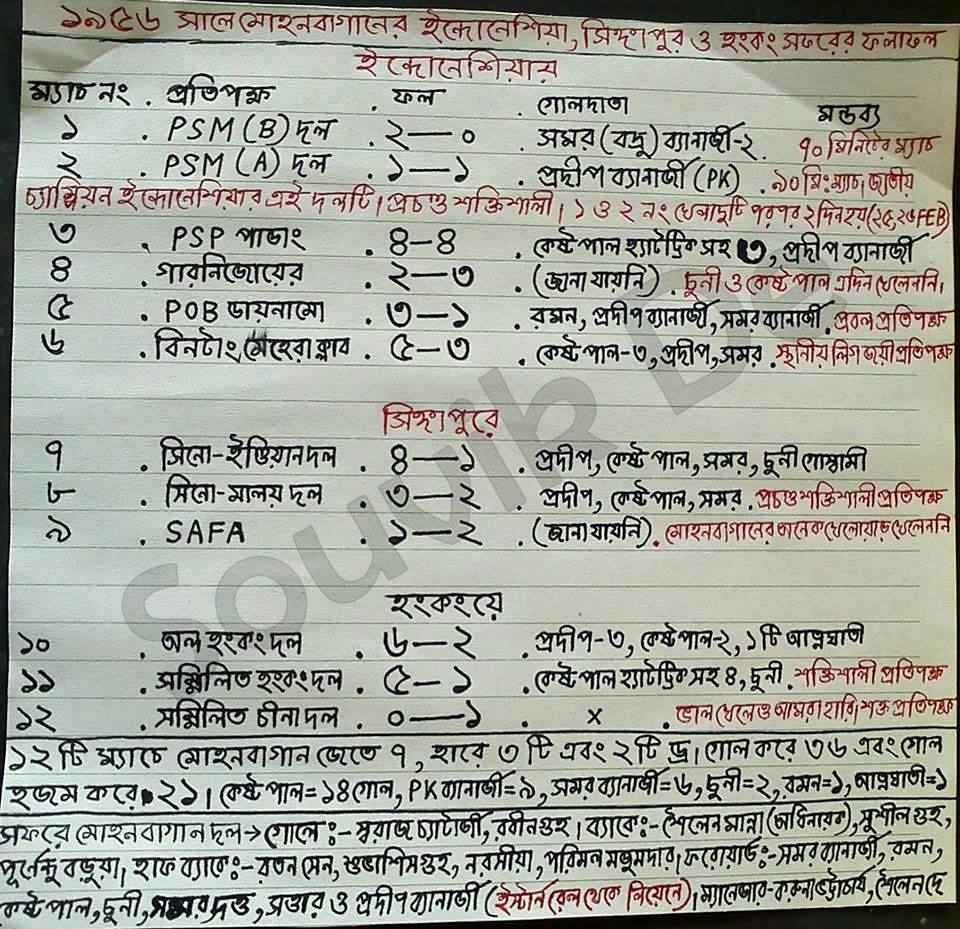 ১৯৫৬ সালে মোহনবাগানের ইন্দোনেশিয়া, সিঙ্গাপুর ও হংকং সফরের ফলাফল
ইন্দোনেশিয়ায়
ম্যাচ নং . প্রতিপক্ষ . ফল . গোলদাতা মন্তব্য
১ . PSM (B) দল ২—০ সমর (বদ্রু) ব্যানার্জী-২. ৭০ মিনিটের ম্যাচ
২ . PSM (A) দল ১—১ . প্রদীপ ব্যানার্জী (PK) . ৯০ মি: ম্যাচ। জাতীয়
চ্যাম্পিয়ন ইন্দোনেশিয়ার এই দলটি। প্রচণ্ড শক্তিশালী। ১ ও ২ নং খেলাদুটি পরপর ২ দিন হয় (২৫,২৬ FEB)
৩ . PSP পাডাং ৪—৪ . কেষ্ট পাল হ্যাটট্রিক সহ ৩, প্রদীপ ব্যানার্জী
৪ . গারনিজোয়ের . ২—৩ . (জানা যায়নি) . চুনী ও কেষ্ট পাল এদিন খেলেননি।
৫ . POB ডায়নামো . ৩—১ . রমন, প্রদীপ ব্যানার্জী, সমর ব্যানার্জী . প্রবল প্রতিপক্ষ
৬ . বিনটাং মেহেরা ক্লাব . ৫—৩ . কেষ্ট পাল-৩, প্রদীপ, সমর . স্থানীয় লিগ জয়ী প্রতিপক্ষ
সিঙ্গাপুরে
৭ . সিনো-ইণ্ডিয়ান দল . ৪—১ . প্রদীপ, কেষ্ট পাল, সমর, চুনী গোস্বামী
৮ . সিনো-মালয় দল . ৩—২ . প্রদীপ, কেষ্ট পাল, সমর . প্রচণ্ড শক্তিশালী প্রতিপক্ষ
৯ . SAFA . ১—২ . (জানা যায়নি) . মোহনবাগানের অনেক খেলোয়াড় খেলেননি
হংকংয়ে
১০ . অল হংকং দল . ৬—২ . প্রদীপ-৩, কেষ্ট পাল-২, ১টি আত্মঘাতী
১১ . সম্মিলিত হংকং দল . ৫—১ . কেষ্ট পাল হ্যাটট্রিক সহ ৪, চুনী . শক্তিশালী প্রতিপক্ষ
১২ . সম্মিলিত চীনা দল . ০—১ . x . ভাল খেলেও আমরা হারি। শক্ত প্রতিপক্ষ
১২ টি ম্যাচে মোহনবাগান জেতে ৭, হারে ৩ টি এবং ২ টি ড্র। গোল করে ৩৬ এবং গোল
হজম করে ২১। কেষ্ট পাল=১৪ গোল, PK ব্যানার্জী=৯, সমর ব্যানার্জী=৬, চুনী=২, রমন=১, আত্মঘাতী=১
সফরে মোহনবাগান দল→ গোলে :- স্বরাজ চ্যাটার্জী, রবীন গুহ। ব্যাকে:- শৈলেন মান্না (অধিনায়ক), সুশীল গুহ,
পূর্ণেন্দু বড়ুয়া। হাফ ব্যাকে:- রতন সেন, শুভাশিস গুহ, নরসীয়া, পরিমল মজুমদার। ফরোয়ার্ড:- সমর ব্যানার্জী, রমন,
কেষ্ট পাল, চুনী, সমর দত্ত, সত্তার ও প্রদীপ ব্যানার্জী (ইস্টার্ন রেল থেকে নিয়েনে)। ম্যানেজার- করুনা ভট্টাচার্য, শৈলেন দে
Souvik De